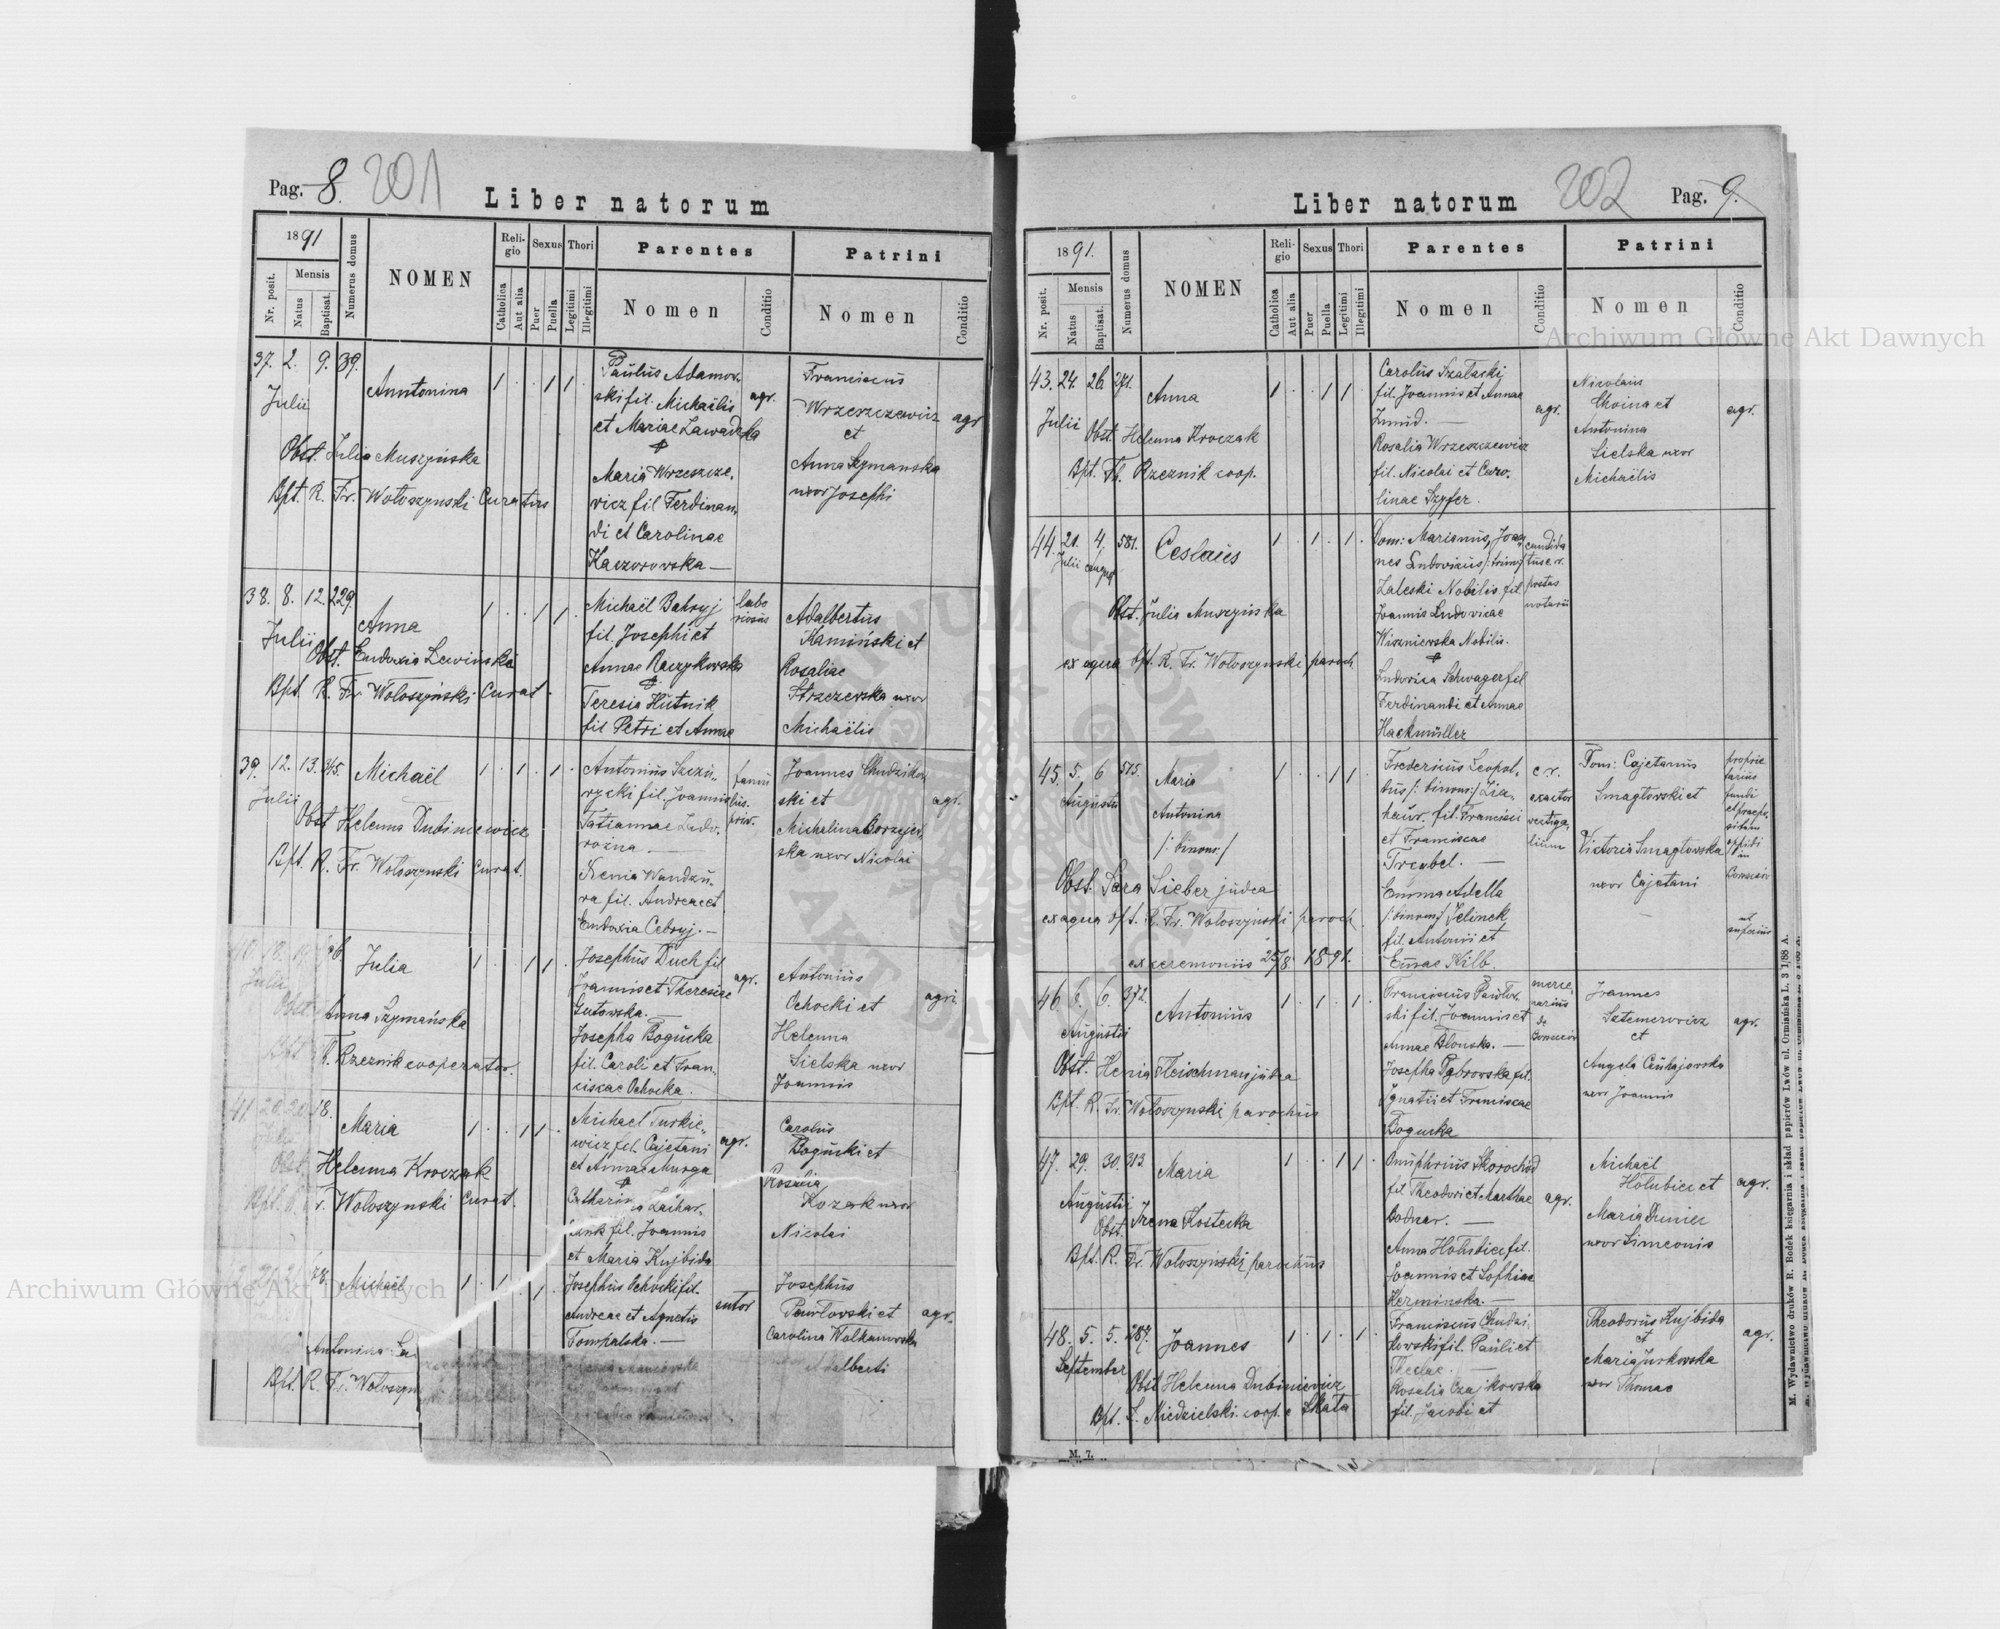 Pag. 8. 201
Liber natorum
1891
Nr. posit.
Mensis
Natus
Baptisat.
Numerus domus
NOMEN
Reli-
gio
Catholica
Aut alia
Sexus
Puer
Puella
Thori
Legitimi
Illegitimi
Parentes
Nomen
Conditio
Patrini
Nomen
Conditio
37. 2. 9. 39.
Julii
Anntonina
1 . . 1 1 .
Obst. Julia Muszyńska
Bpt. R. Fr. Wołoszynski Curatus
Paulus Adamow-
ski fil. Michaëlis
et Mariae Zawadzka
Maria Wrzeszcze-
wicz fil Ferdinan-
di et Carolinae
Kaczorowska —
agr.
Franciscus
Wrzeszczewicz
et
Anna Szymanska
uxor Josephi
agr
38. 8. 12. 229.
Julii
Anna
1 . . 1 1 .
Obst. Eudoxia Lewińska
Bpt. R. Fr. Wołoszyński Curat.
Michaël Behryj
fil. Josephi et
Annae Raczykowska
Teresia Hutnik
fil Petri et Annae
labo
riosus
Adalbertus
Kamiński et
Rosaliae
Strzezewska uxor
Michaëlis
39. 12. 13. 345.
Julii
Michaël
1 . 1 . 1 .
Obst Helenna Dubiniewicz
Bpt. R. Fr. Wołoszynski Curat.
Antonius Szczu-
rycki fil. Joannis
Tatiannae Zado-
rożna. —
Xenia Wandzu-
ra fil. Andreae et
Eudoxia Cebryj. —
famu
lus.
priv.
Joannes Chudzikow-
ski et
Michalina Borzyjew-
ska uxor Nicolai
agr.
40. 18. 19.
Julii
Julia
1 . . 1 1 .
Obst
Anna Szymańska
Bpt R. Rzeznik cooperator.
Josephus Duch fil
Joannis et Theresiae
Gutowska. —
Josepha Bogucka
fil. Caroli et Fran-
ciscae Ochocka.
agr.
Antonius
Ochocki et
Helenna
Sielska uxor
Joannis
agri
41. 20. 20. 18.
Maria
1 . . 1 1 .
Obst. Helenna Kroczak
Bpt. R. Fr. Wołoszynski Curat.
Michael Turkie-
wicz fil. Cajetani
et Annae Murga
fil. Joannis
et Maria Kujbida
agr.
Carolus
Bogucki et
Rosalia
Kozak uxor
Nicolai
78. Michaël
1 . 1 . 1 .
Antonina
Bpt. R. Fr. Wołoszyn
Josephus Ochocki fil.
Andreae et Agnetis
Tompalska. —
sutor
Josephus
Pawłowski et
Carolina Wolkanowska
Adalberti
agr.
Liber natorum
202 Pag. 9.
1891.
Nr. posit.
Mensis
Natus
Baptisat.
Numerus domus
NOMEN
Reli-
gio
Catholica
Aut alia
Sexus
Puer
Puella
Thori
Legitimi
Illegitimi
Parentes
Nomen
Conditio
Patrini
Nomen
Conditio
43. 24. 26. 271.
Julii
Anna
1 . . 1 1 .
Obst. Helenna Kroczak
Bpt. Fr. Rzeznik coop.
Carolus Szałacki
fil. Joannis et Annae
Zmud. —
Rosalia Wrzeszczewicz
fil. Nicolai et Caro-
linae Szpfer.
agr.
Nicolaus
Choina et
Antonina
Sielska uxor
Michaëlis
agr.
44. 21. 4. 581.
Julii August
Ceslaus
1 . 1 . 1 .
Obst. Julia Muszyńska
ex aqua bpt. R. Fr. Wołoszynski paroch
Dom: Marianus, Joan-
nes Ludovicus /:trium:/
Zaleski Nobilis fil.
Joannis Ludovicae
Wiszniewska Nobilis.
Ludovica Schwager fil
Ferdinandi et Annae
Hackmüller
candida
tus c. r.
postus
notarii
45. 5. 6 515.
Augusti
Maria
Antonina
/: binom:/
1 . . 1 1 .
Obst. Sara Sieber judea
ex aqua bpt. R. Fr. Wołoszynski paroch
ex ceremoniis 25/8 1891.
Fredericus Leopol-
dus /: binom:/ Lia-
haur. fil. Francisci
et Franciscae
Treybel. —
Emma Adella
/:binom:/ Jelinek
fil. Antonii et
Emae Kilb.
c r.
exactor
vectiga-
lium
Dom: Cajetanus
Smagłowski et
Victoria Smagłowska
uxor Cajetani
proprie
tarius
fundi
ut
superius
46. 6. 6. 372.
Augusti
Antonius
1 . 1 . 1 .
Obst. Henia Fleischman judea
Bpt. R. Fr. Wołoszynski parochus
Franciscus Pawłow-
ski fil. Joannis et
Annae Błonska. —
Josepha Dąbrowska fil.
Ignatii et Franciscae
Bogucka
merce-
narius
de
Joannes
Sztemerowicz
et
Angela Czuhajowska
uxor Joannis
agr.
47. 29. 30. 313.
Augusti
Maria
1 . . 1 1 .
Obst. Irena Kostecka
Bpt. R. Fr. Wołoszyński parochus
Onuphrius Skorochód
fil. Theodori et Marthae
Bodnar. —
Anna Holubice fil.
Joannis et Sophiae
Kerminska. —
agr.
Michaël
Holubice et
Maria Duniec
uxor Simeonis
agr.
48. 5. 5. 287.
September
Joannes
1 . 1 . 1 .
Obst Helenna Dubiniewicz
Bpt. S. Niedzielski coop. e Skała
Franciscus Chudzi-
kowski fil. Pauli et
Theclae. —
Rosalia Czajkowska
fil. Jacobi et
Theodorus Kujbida
et
Maria Jurkowska
uxor Thomae
agr.
M. 7.
M. Wydawnictwo druków R. Bodek księgarnia i skład papierów Lwów ul. Ormiańska L. 3 1/88 A.
Archiwum Główne Akt Dawnych
Archiwum Główne Akt Dawnych